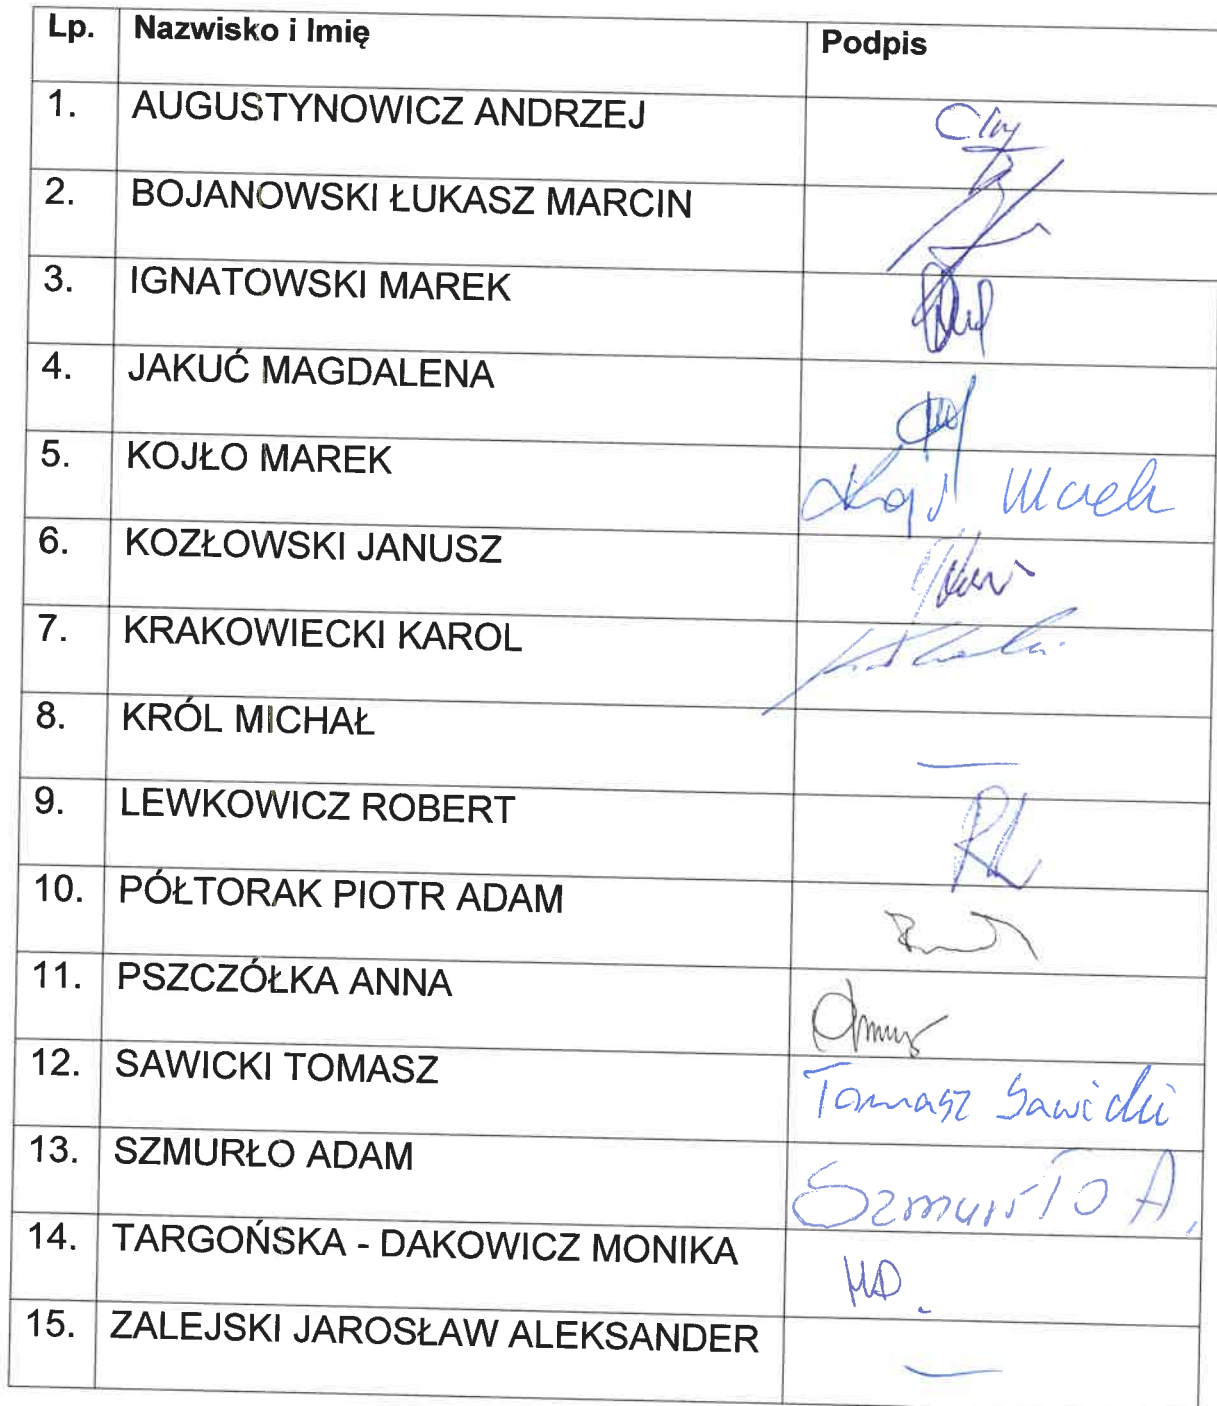 Lp. Nazwisko i Imię Podpis
1. AUGUSTYNOWICZ ANDRZEJ
2. BOJANOWSKI ŁUKASZ MARCIN
3. IGNATOWSKI MAREK
4. JAKUĆ MAGDALENA
5. KOJŁO MAREK Marek
6. KOZŁOWSKI JANUSZ
7. KRAKOWIECKI KAROL
8. KRÓL MICHAŁ —
9. LEWKOWICZ ROBERT RL
10. PÓŁTORAK PIOTR ADAM
11. PSZCZÓŁKA ANNA
12. SAWICKI TOMASZ Tomasz Sawicki
13. SZMURŁO ADAM Szmurło A.
14. TARGOŃSKA - DAKOWICZ MONIKA MD.
15. ZALEJSKI JAROSŁAW ALEKSANDER —